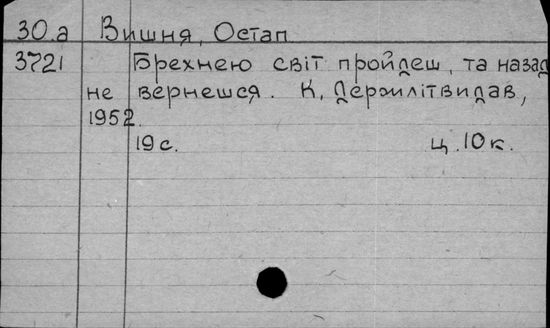 30.а Вишня, Остап
3721 Брехнею світ пройдеш, та назад
не вернешся. К, Держлітвидав,
1952.
19 с. ц. 10 к.